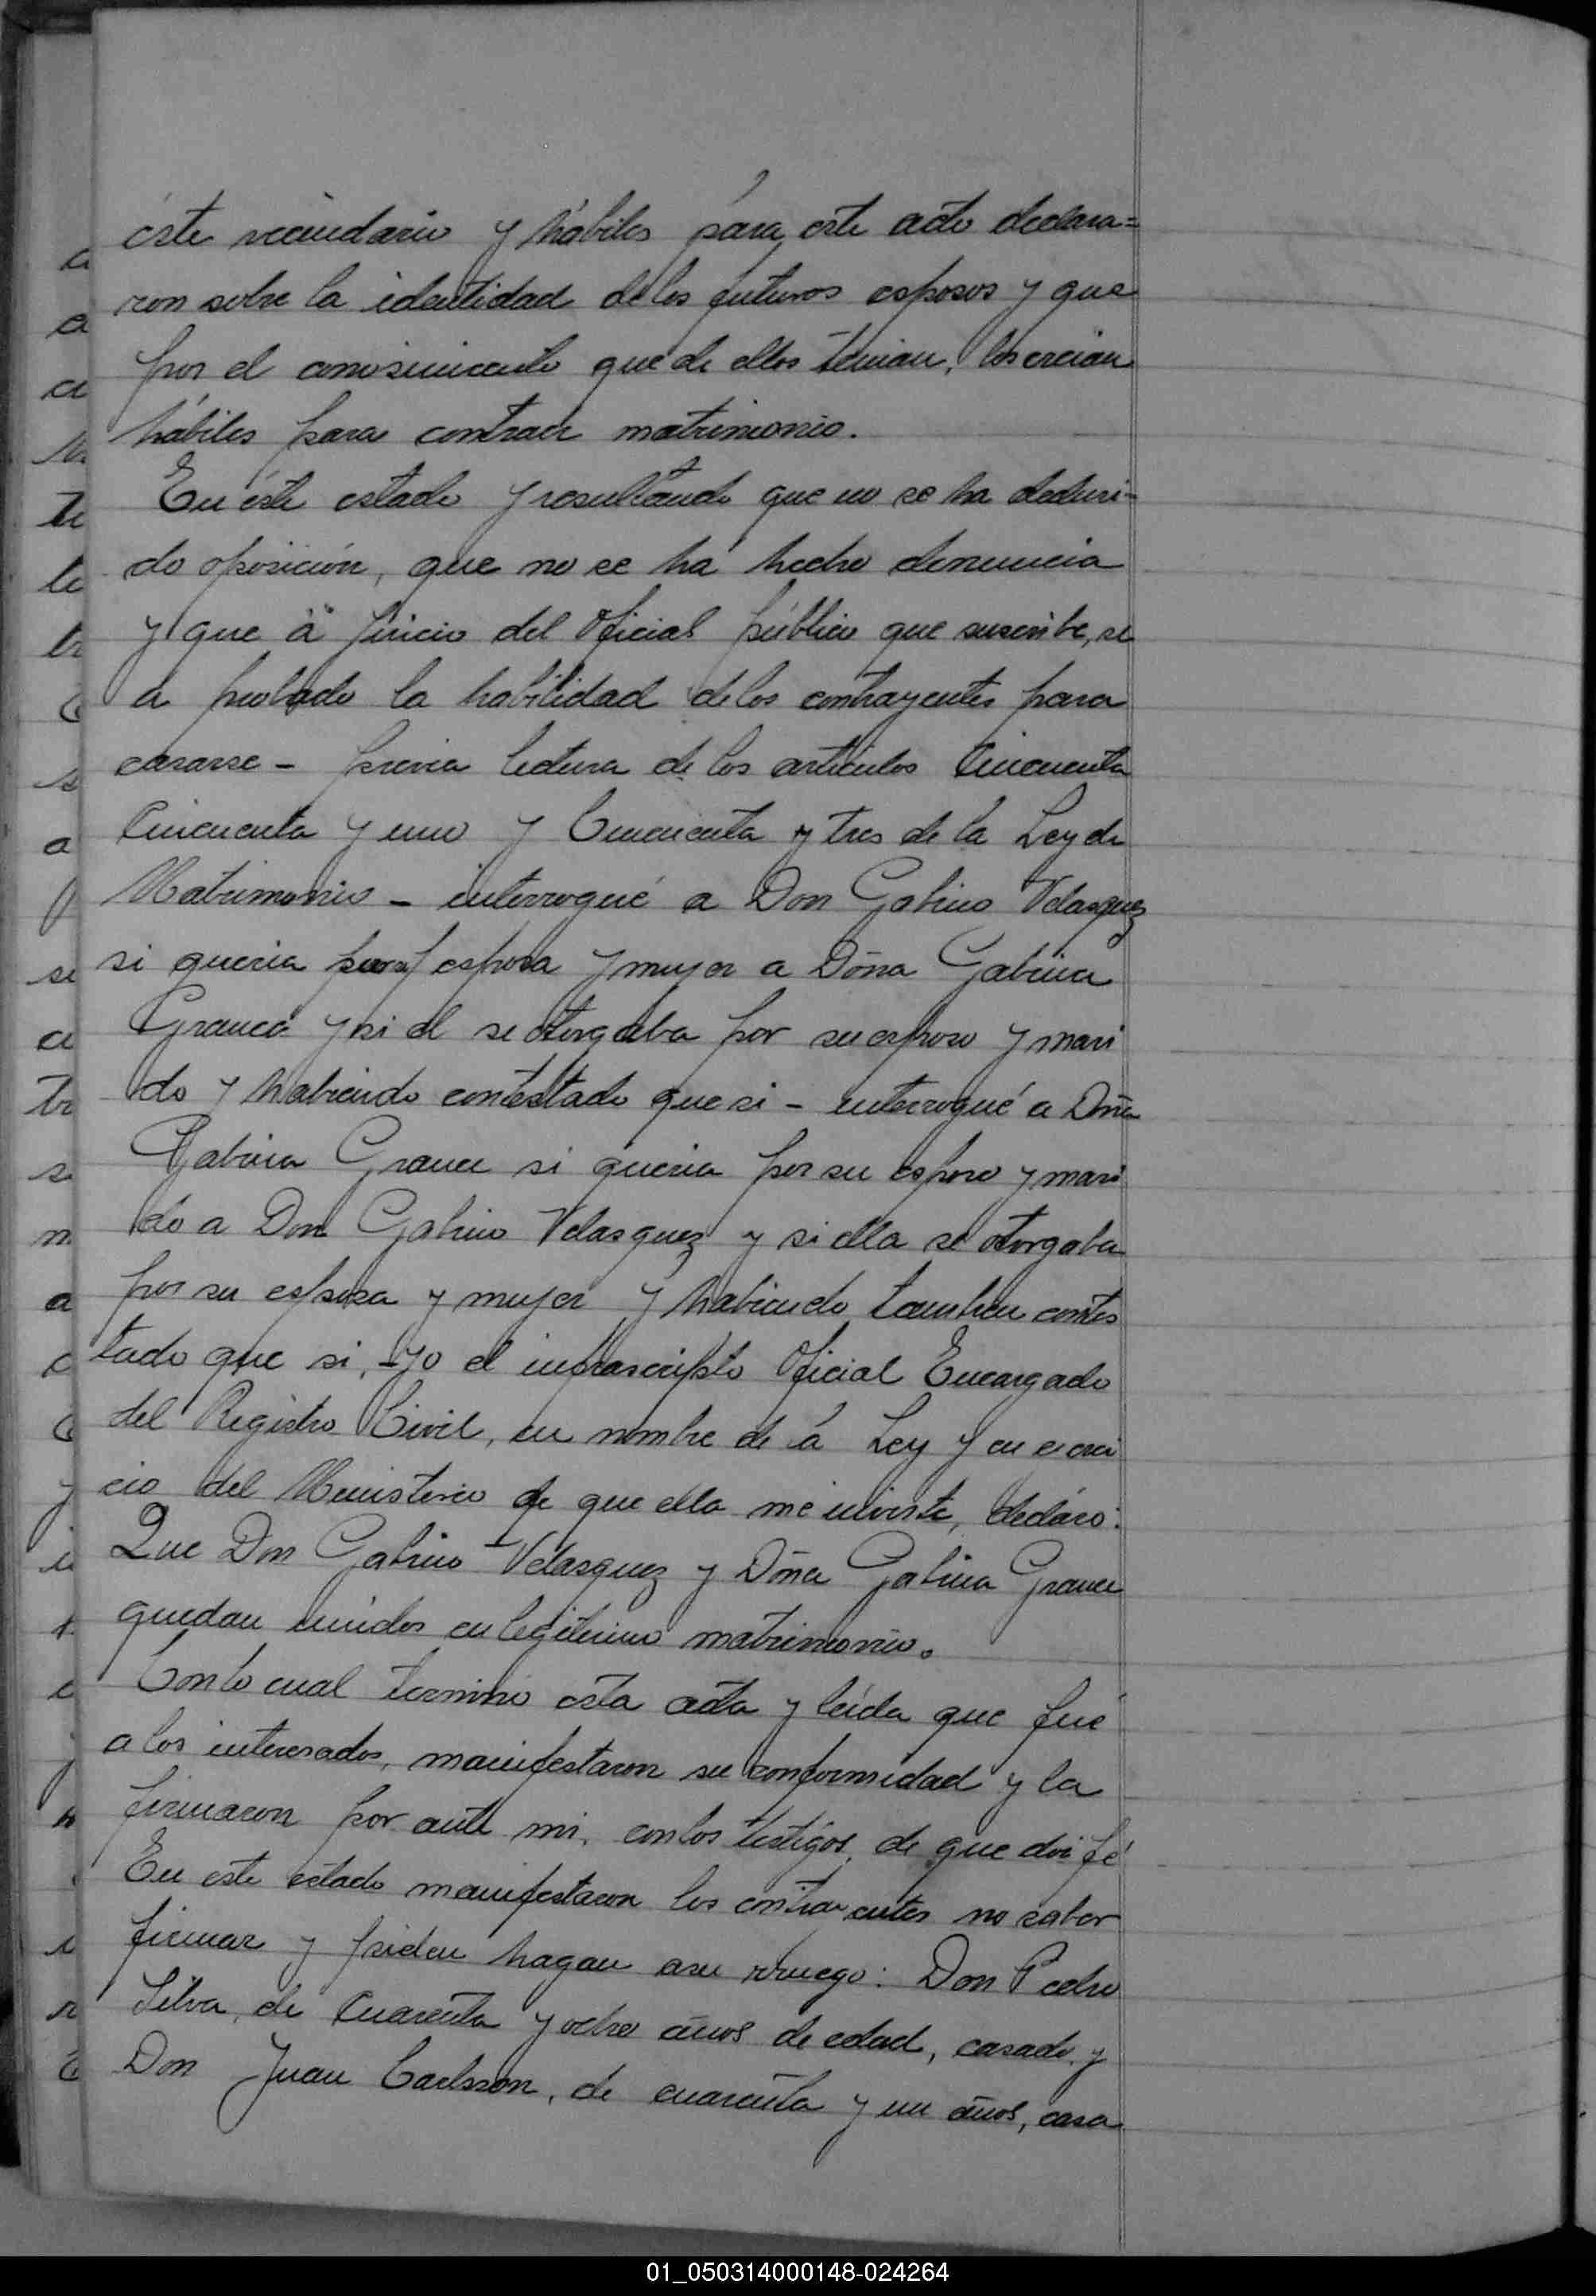 éste vecindario y hábiles para este acto declara=
ron sobre la identidad de los futuros esposos y que
por el conosimiento que de ellos tenian, los creian
hábiles para contraer matrimonio.
En éste estado y resultando que no se ha deduci-
do oposición, que no se ha hecho denuncia
y que á juicio del Oficial público que suscribe, se
a probado la habilidad de los contrayentes para
casarse - previa lectura de los artículos Cincuenta
Cincuenta y uno y Cincuenta y tres de la Ley de
Matrimonio - interrogué a Don Gabino Velasquez
si queria para esposa y mujer a Doña Gabina
Grance y si el se otorgaba por su esposo y mari
do y habiendo contestado que si - interrogué a Doña
Gabina Grance si queria por su esposo y mari
do a Don Gabino Velasquez y si ella se otorgaba
por su esposa y mujer y habiendo tambien contes
tado que si, - yo el infrascripto Oficial Encargado
del Registro Civil, en nombre de a Ley y en ejerci
cio del Ministerio de que ella me inviste, declaro:
Que Don Gabino Velasquez y Doña Gabina Grance
quedan unidos en legitimo matrimonio.
Con lo cual termino esta acta y leída que fué
a los interesados, manifestaron su conformidad y la
firmaron por ante mi, con los testigos, de que doi fé
En este estado manifestaron los contrayentes no saber
firmar y piden hagan a su rruego: Don Pedro
Silva, de Cuarenta y ocho años de edad, casado y
Don Juan Carlsson, de cuarenta y un años, casa
01_050314000148-024264